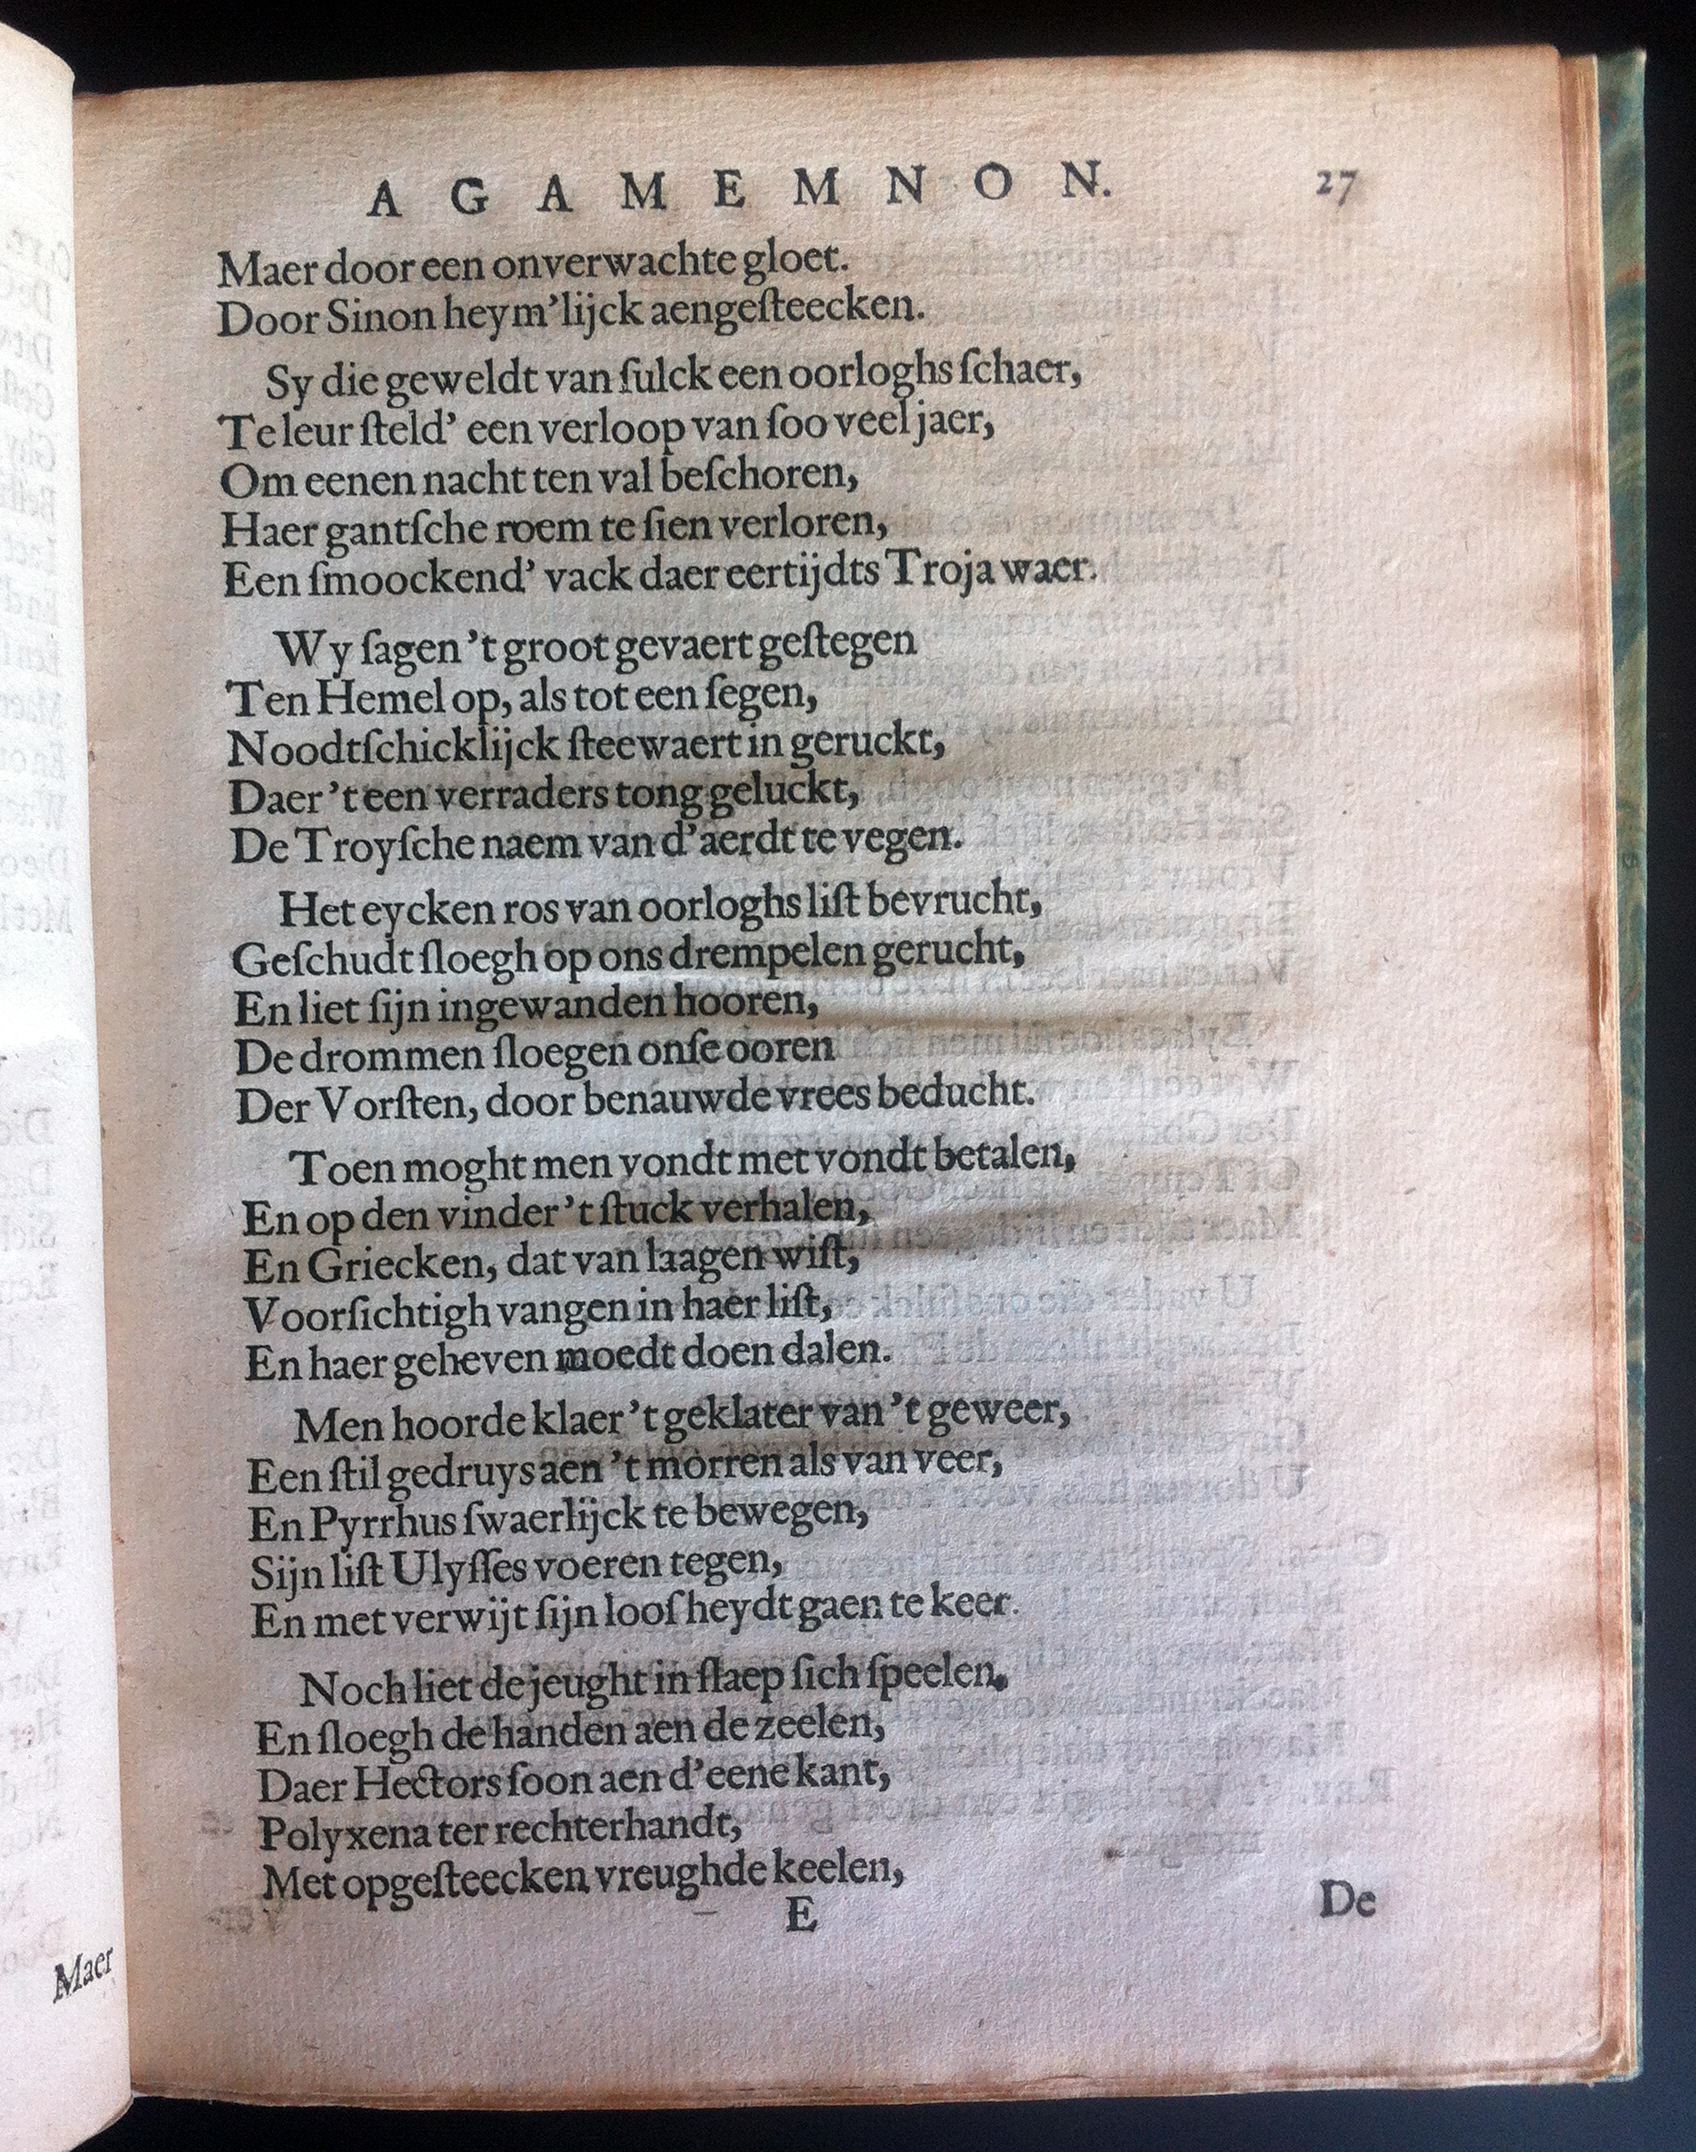 A G A M E M N O N. 27
Maer door een onverwachte gloet.
Door Sinon heym'lijck aengeſteecken.
Sy die geweldt van ſulck een oorloghs ſchaer,
Te leur ſteld' een verloop van ſoo veel jaer,
Om eenen nacht ten val beſchoren,
Haer gantſche roem te ſien verloren,
Een ſmoockend' vack daer eertijdts Troja waer.
Wy ſagen 't groot gevaert geſtegen
Ten Hemel op, als tot een ſegen,
Noodtſchicklijck ſteewaert in geruckt,
Daer 't een verraders tong geluckt,
De Troyſche naem van d'aerdt te vegen.
Het eycken ros van oorloghs liſt bevrucht,
Geſchudt ſloegh op ons drempelen gerucht,
En liet ſijn ingewanden hooren,
De drommen ſloegen onſe ooren
Der Vorſten, door benauwde vrees beducht.
Toen moght men vondt met vondt betalen,
En op den vinder 't ſtuck verhalen,
En Griecken, dat van laagen wiſt,
Voorſichtigh vangen in haer liſt,
En haer geheven moedt doen dalen.
Men hoorde klaer 't geklater van 't geweer,
Een ſtil gedruys aen 't morren als van veer,
En Pyrrhus ſwaerlijck te bewegen,
Sijn liſt Ulyſſes voeren tegen,
En met verwijt ſijn loofheydt gaen te keer.
Noch liet de jeught in ſlaep ſich ſpeelen,
En ſloegh de handen aen de zeelen,
Daer Hectors ſoon aen d'eene kant,
Polyxena ter rechterhandt,
Met opgeſteecken vreughde keelen,
E De
Maer